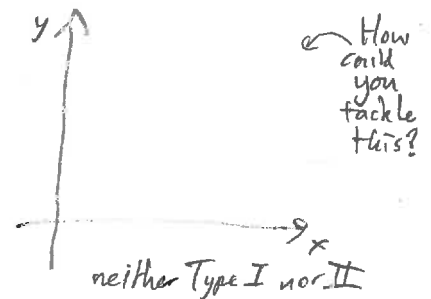 y
How
could
you
tackle
this?
x
neither Type I nor II